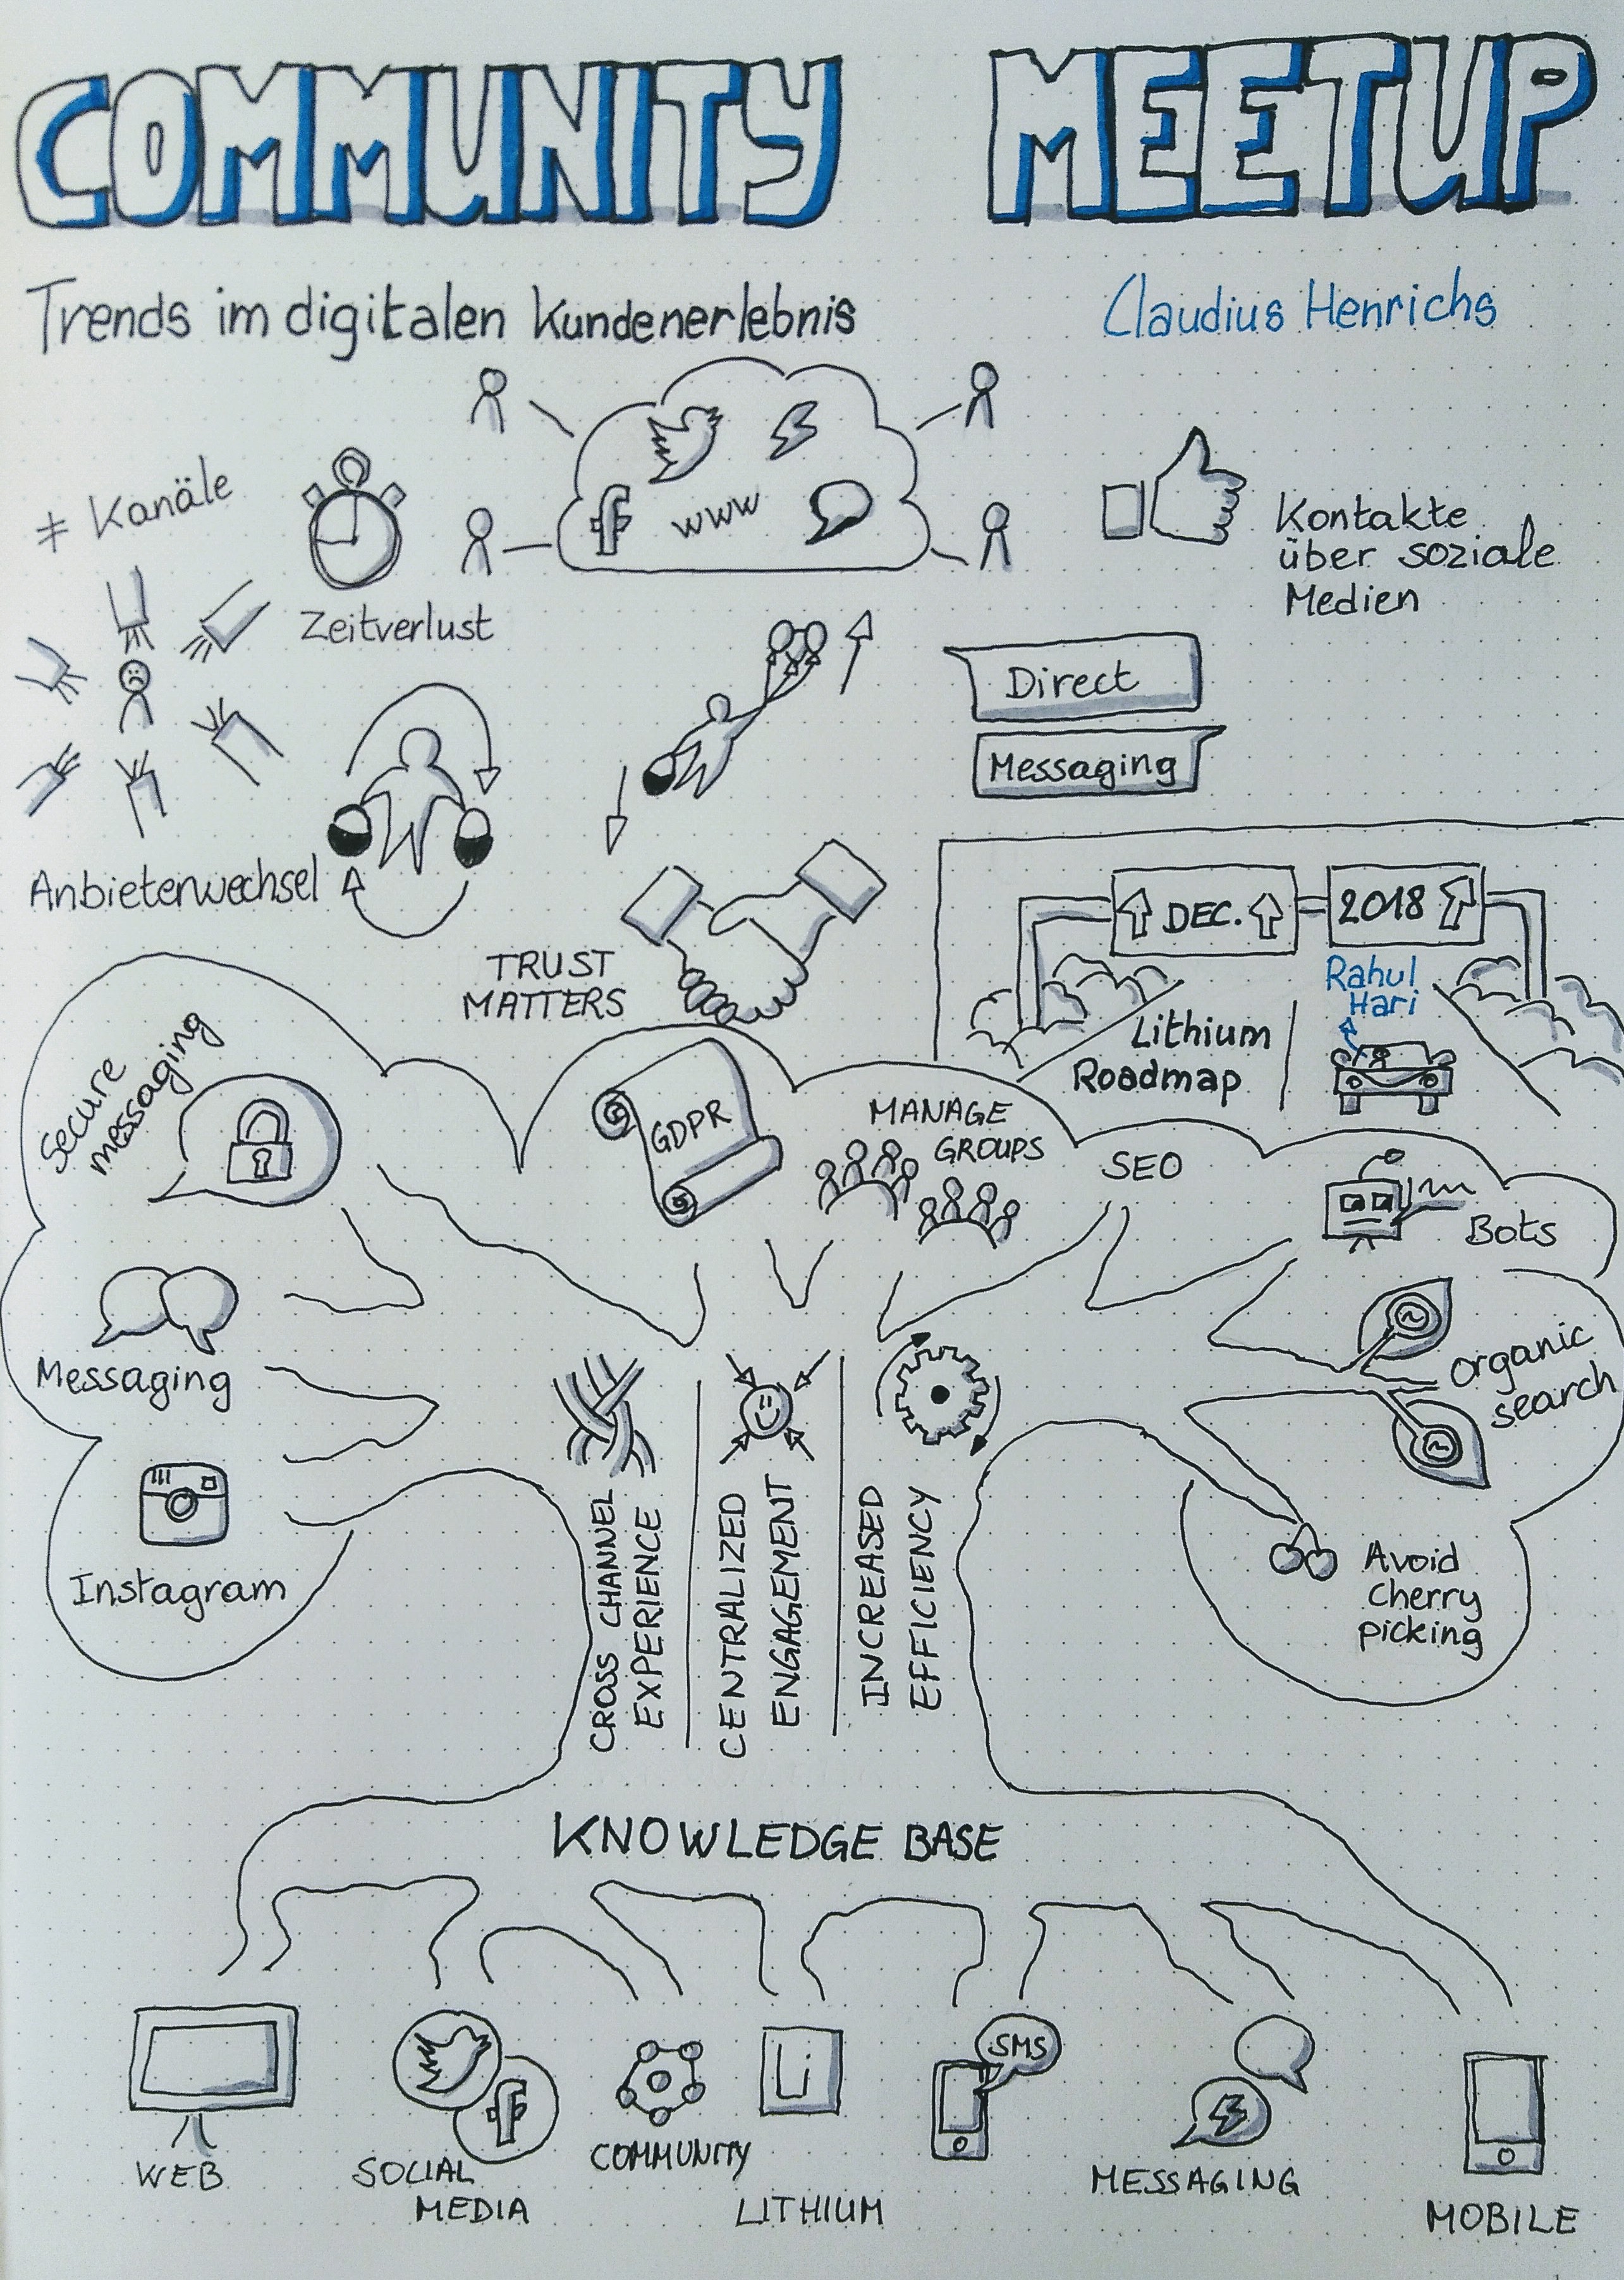 COMMUNITY MEETUP
Trends im digitalen Kundenerlebnis
Claudius Henrichs
≠ Kanäle
f www
Kontakte
über soziale
Medien
Zeitverlust
Direct
Messaging
Anbieterwechsel
TRUST
MATTERS
DEC.
2018
Rahul
Hari
Lithium
Roadmap
Secure
messaging
GDPR
MANAGE
GROUPS
SEO
Bots
Messaging
Organic
search
Instagram
Avoid
cherry
picking
CROSS CHANNEL
EXPERIENCE
CENTRALIZED
ENGAGEMENT
INCREASED
EFFICIENCY
KNOWLEDGE BASE
WEB
f
SOCIAL
MEDIA
COMMUNITY
Li
LITHIUM
SMS
MESSAGING
MOBILE